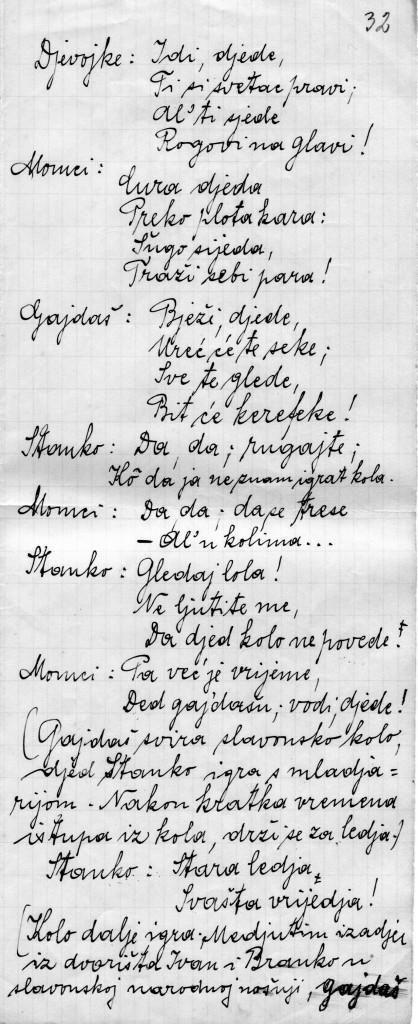 32
Djevojke: Idi, djede,
Ti si svetac pravi;
Al' ti sjede
Rogovi na glavi!
Momci:
Cura djeda
Preko plota kara:
Šugo sijeda,
Traži sebi para!
Gajdaš: Bježi, djede,
Ureć će te seke;
Sve te glede,
Bit će kerefeke!
Stanko: Da, da; rugajte;
Kô da ja ne znam igrat kola.
Momci: Da, da; da se trese
- Al' u kolima...
Stanko: Gledaj lola!
Ne ljutite me,
Da djed kolo ne povede!
Momci: Pa već je vrijeme,
Ded gajdašu; vodi, djede!
(Gajdaš svira slavonsko kolo,
djed Stanko igra s mladja=
rijom. Nakon kratka vremena
istupa iz kola, drži se za ledja.)
Stanko: Stara ledja,
Svašta vrijedja!
(Kolo dalje igra. Medjutim izadju
iz dvorišta Ivan i Branko u
slavonskoj narodnoj nošnji, gajdaš